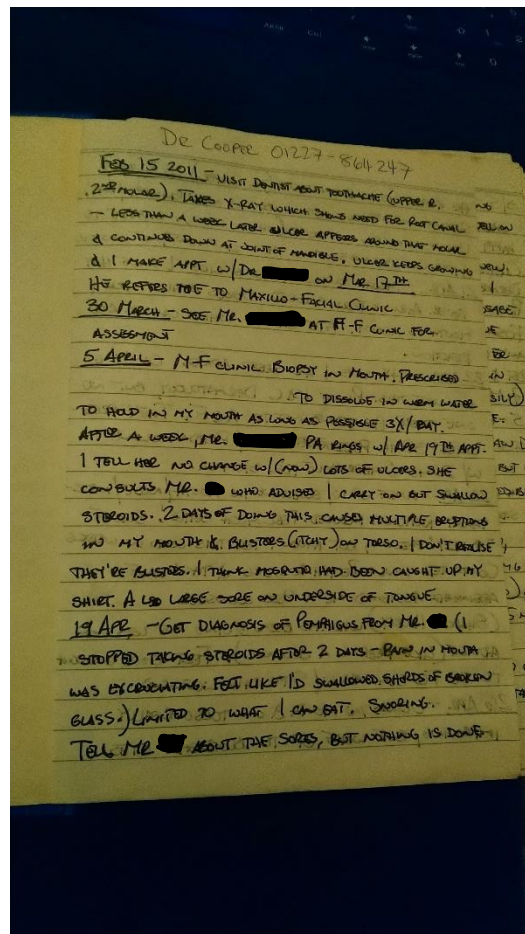 DR COOPER 01227-864247
FEB 15 2011 - VISIT DENTIST ABOUT TOOTHACHE (UPPER R.
2ND MOLAR). TAKES X-RAY WHICH SHOWS NEED FOR ROOT CANAL
- LESS THAN A WEEK LATER ULCER APPEARS AROUND THAT MOLAR
& CONTINUES DOWN AT JOINT OF MANDIBLE. ULCER KEEPS GROWING
& I MAKE APPT. W/DR ON MAR. 17TH
HE REFERS ME TO MAXILLO-FACIAL CLINIC
30 MARCH - SEE MR. AT M-F CLINIC FOR
ASSESSMENT
5 APRIL - M-F CLINIC BIOPSY IN MOUTH. PRESCRIBED
TO DISSOLVE IN WARM WATER
TO HOLD IN MY MOUTH AS LONG AS POSSIBLE 3X/DAY.
AFTER A WEEK, MR. PA RINGS W/ APR 19TH APPT.
I TELL HER NO CHANGE W/(NOW) LOTS OF ULCERS. SHE
CONSULTS MR. WHO ADVISED I CARRY ON BUT SWALLOW
STEROIDS. 2 DAYS OF DOING THIS CAUSED MULTIPLE ERUPTIONS
IN MY MOUTH & BLISTERS (ITCHY) ON TORSO. I DON'T REALISE
THEY'RE BLISTERS. I THINK MOSQUITO HAD BEEN CAUGHT UP MY
SHIRT. ALSO LARGE SORE ON UNDERSIDE OF TONGUE.
19 APR - GET DIAGNOSIS OF PEMPHIGUS FROM MR. (I
STOPPED TAKING STEROIDS AFTER 2 DAYS - PAIN IN MOUTH
WAS EXCRUCIATING. FELT LIKE I'D SWALLOWED SHARDS OF BROKEN
GLASS.) LIMITED TO WHAT I CAN EAT. SNORING.
TELL MR ABOUT THE SORES, BUT NOTHING IS DONE.